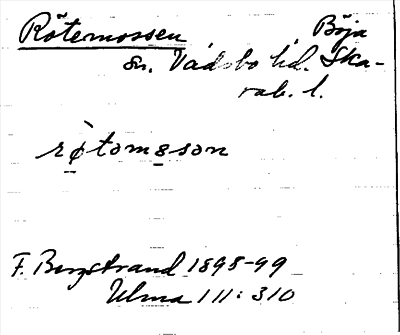 Rötemossen, Böja
sn. Vadsbo hd. Ska-
rab. l.
rø̀tomsson
F. Bergstrand 1898-99
Ulma 111:310